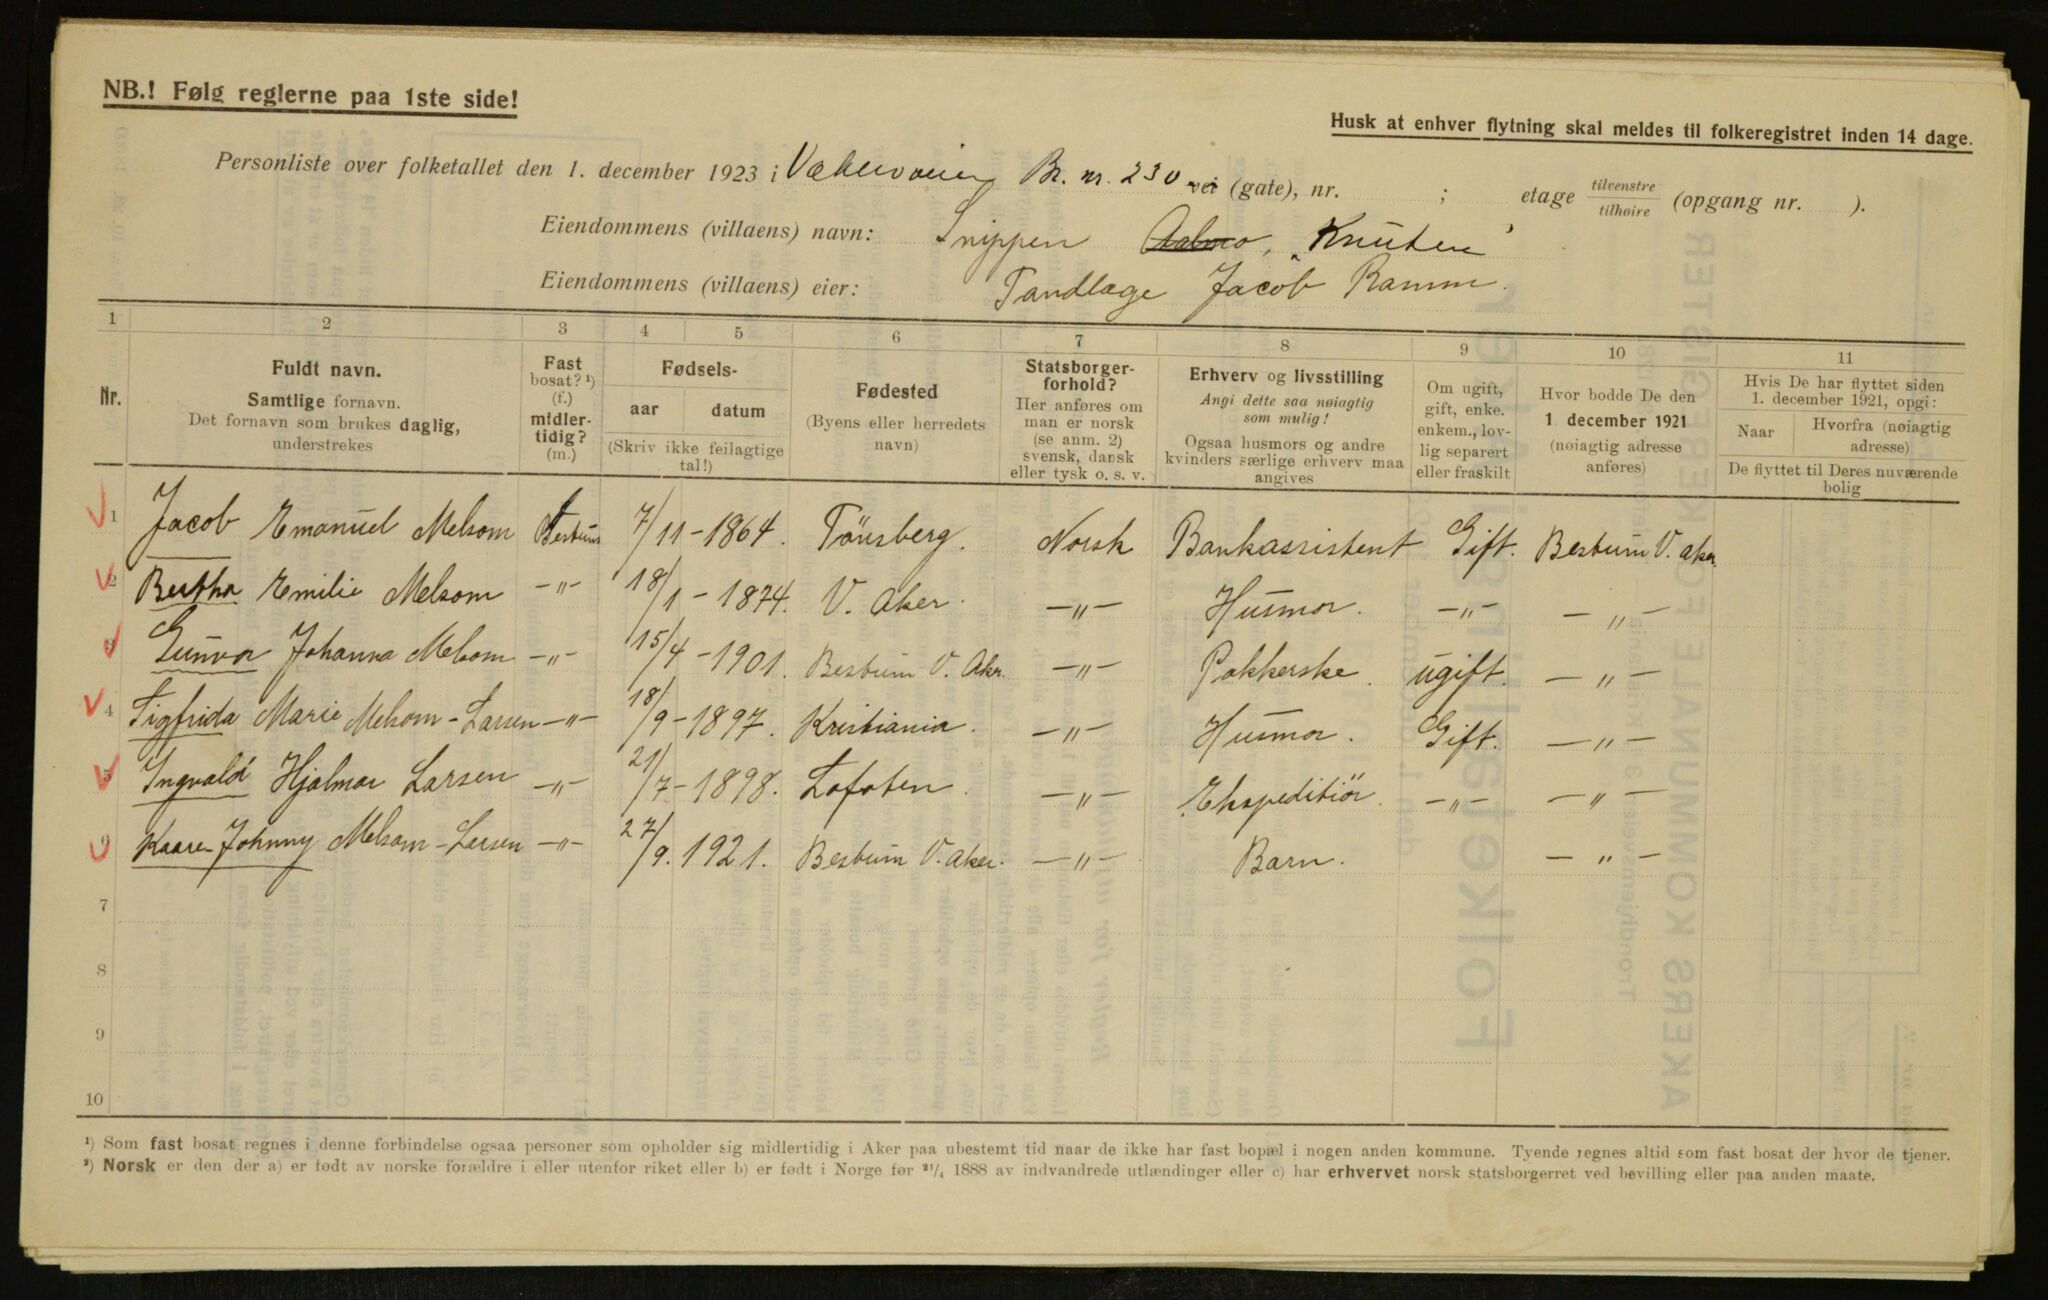 NB.! Følg reglerne paa 1ste side!
Husk at enhver flytning skal meldes til folkeregistret inden 14 dage.
Personliste over folketallet den 1. december 1923 i Vækerøveien Br. nr. 230 vei (gate), nr. ; etage tilvenstre/tilhøire (opgang nr. ).
Eiendommens (villaens) navn: Snippen Aalmo, "Knuten"
Eiendommens (villaens) eier: Tandlæge Jacob Ramm.
1 2 3 4 5 6 7 8 9 10 11
Nr.
Fuldt navn.
Samtlige fornavn.
Det fornavn som brukes daglig,
understrekes
Fast
bosat? ¹)
(f.)
midler-
tidig?
(m.)
Fødsels-
aar datum
(Skriv ikke feilagtige
tal!)
Fødested
(Byens eller herredets
navn)
Statsborger-
forhold?
Her anføres om
man er norsk
(se anm. 2)
svensk, dansk
eller tysk o. s. v.
Erhverv og livsstilling
Angi dette saa nøiagtig
som mulig!
Ogsaa husmors og andre
kvinders særlige erhverv maa
angives
Om ugift,
gift, enke.
enkem., lov-
lig separert
eller fraskilt
Hvor bodde De den
1. december 1921
(nøiagtig adresse
anføres)
Hvis De har flyttet siden
1. december 1921, opgi:
Naar Hvorfra (nøiagtig
adresse)
De flyttet til Deres nuværende
bolig
1 Jacob Emanuel Melsom Bestum 7/11-1864. Tönsberg. Norsk Bankassistent Gift. Bestum V. Aker.
2 Bertha Emilie Melsom —„— 18/1-1874. V. Aker. —„— Husmor. —„— —„—
3 Gunvor Johanna Melsom —„— 15/4-1901. Bestum V. Aker. —„— Pakkerske. ugift. —„—
4 Sigfrida Marie Melsom-Larsen —„— 18/9-1897. Kristiania. —„— Husmor. Gift. —„—
5 Ingvald Hjalmar Larsen —„— 21/7-1898. Lofoten. —„— Ekspeditiör. —„— —„—
6 Kaare Johnny Melsom-Larsen —„— 27/9. 1921. Bestum V. Aker. —„— Barn. —„—
7
8
9
10
¹) Som fast bosat regnes i denne forbindelse ogsaa personer som opholder sig midlertidig i Aker paa ubestemt tid naar de ikke har fast bopæl i nogen anden kommune. Tyende regnes altid som fast bosat der hvor de tjener.
²) Norsk er den der a) er født av norske forældre i eller utenfor riket eller b) er født i Norge før ²¹/₄ 1888 av indvandrede utlændinger eller c) har erhvervet norsk statsborgerret ved bevilling eller paa anden maate.